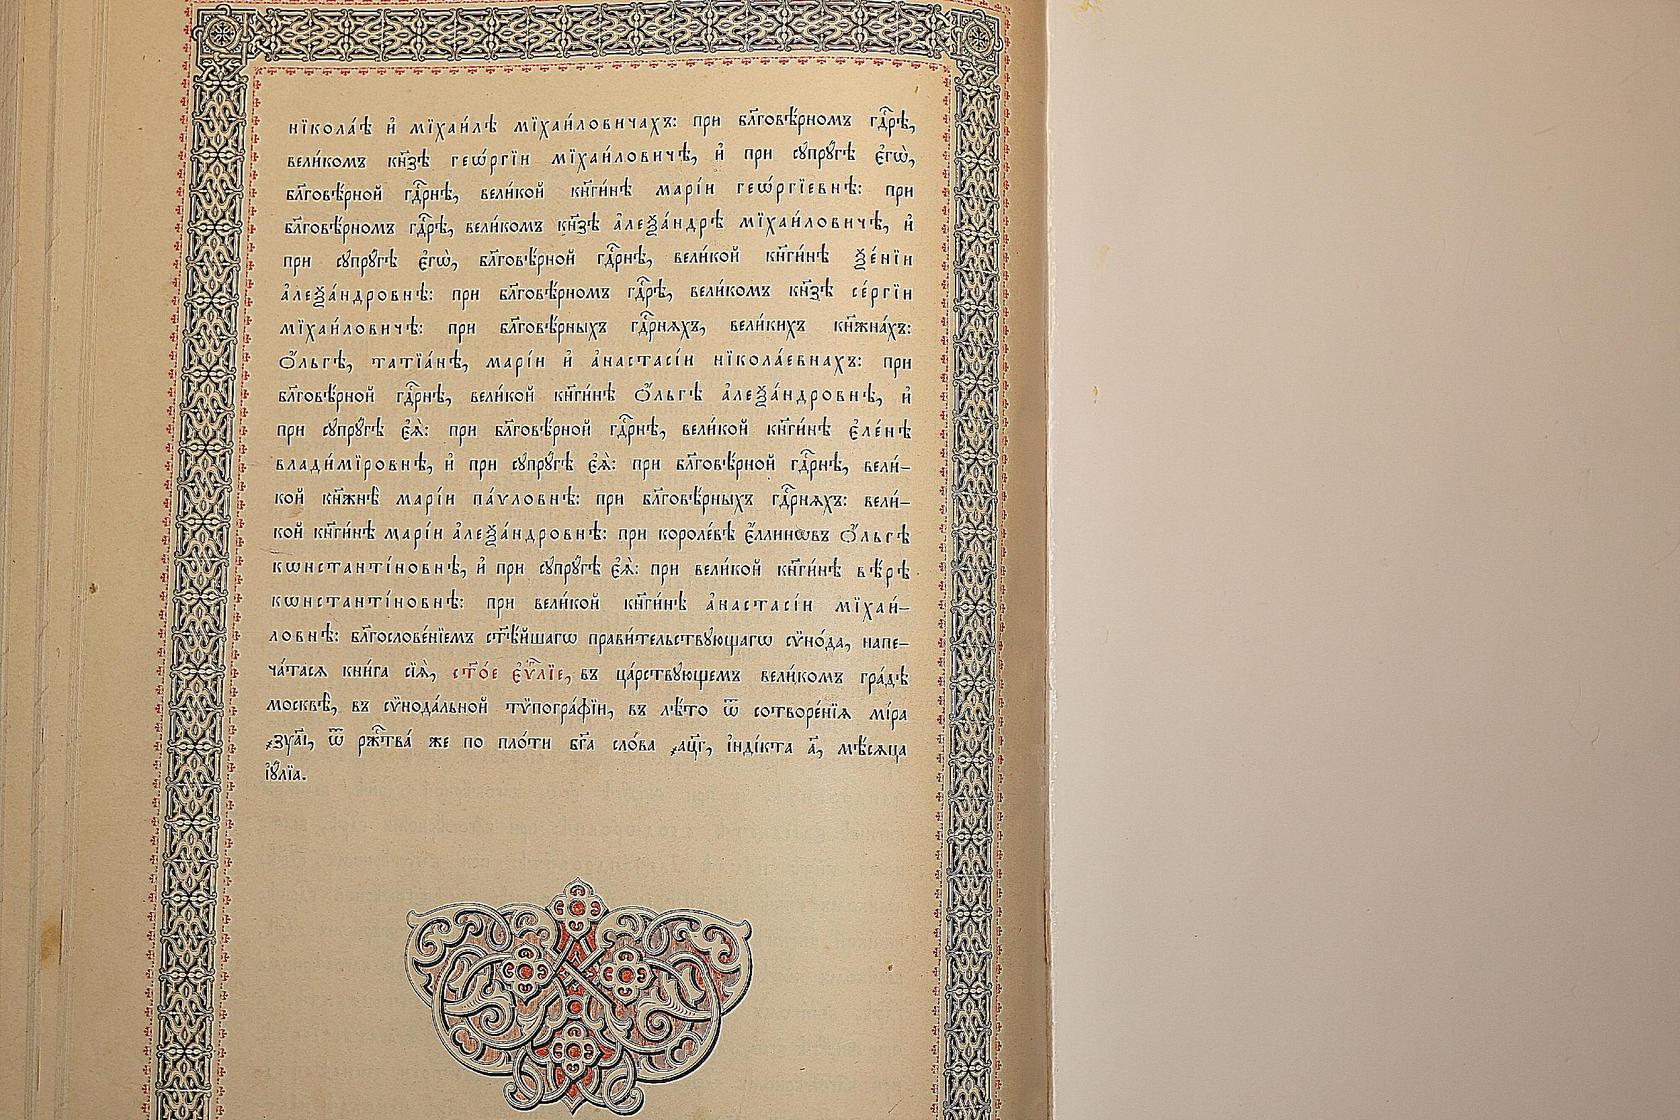 нїкола́ѣ и҆ мїхаи́лѣ мїхаи́ловичахъ: при бл҃говѣ́рномъ гдⷭ҇рѣ,
вели́комъ кн҃зѣ геѡ́ргїи мїхаи́ловичѣ, и҆ при сꙋпрꙋ́гѣ є҆гѡ̀,
бл҃говѣ́рной гдⷭ҇рнѣ, вели́кой кн҃ги́нѣ марі́и геѡ́ргїевнѣ: при
бл҃говѣ́рномъ гдⷭ҇рѣ, вели́комъ кн҃зѣ а҆леѯа́ндрѣ мїхаи́ловичѣ, и҆
при сꙋпрꙋ́гѣ є҆гѡ̀, бл҃говѣ́рной гдⷭ҇рнѣ, вели́кой кн҃ги́нѣ ѯе́нїи
а҆леѯа́ндровнѣ: при бл҃говѣ́рномъ гдⷭ҇рѣ, вели́комъ кн҃зѣ се́ргїи
мїхаи́ловичѣ: при бл҃говѣ́рныхъ гдⷭ҇рнѧхъ, вели́кихъ кн҃жна́хъ:
Ѻ҆́льгѣ, татїа́нѣ, марі́и и҆ а҆настасі́и нїкола́евнахъ: при
бл҃говѣ́рной гдⷭ҇рнѣ, вели́кой кн҃ги́нѣ Ѻ҆́льгѣ а҆леѯа́ндровнѣ, и҆
при сꙋпрꙋ́гѣ є҆ѧ̀: при бл҃говѣ́рной гдⷭ҇рнѣ, вели́кой кн҃ги́нѣ є҆ле́нѣ
влади́мїровнѣ, и҆ при сꙋпрꙋ́гѣ є҆ѧ̀: при бл҃говѣ́рной гдⷭ҇рнѣ, вели́-
кой кн҃жнѣ̀ марі́и па́ѵловнѣ: при бл҃говѣ́рныхъ гдⷭ҇рнѧхъ: вели́-
кой кн҃ги́нѣ марі́и а҆леѯа́ндровнѣ: при короле́вѣ є҆́ллинѡвъ Ѻ҆́льгѣ
кѡнстанті́новнѣ, и҆ при сꙋпрꙋ́гѣ є҆ѧ̀: при вели́кой кн҃ги́нѣ вѣ́рѣ
кѡнстанті́новнѣ: при вели́кой кн҃ги́нѣ а҆настасі́и мїхаи́-
ловнѣ: бл҃гослове́нїемъ ст҃ѣ́йшагѡ прави́тельствꙋющагѡ сѷно́да, напе-
ча́тасѧ кни́га сїѧ̀, ст҃о́е є҆ѵⷢ҇лїе, въ ца́рствꙋющемъ вели́комъ гра́дѣ
москвѣ̀, въ сѷнода́льной тѷпогра́фїи, въ лѣ́то ѿ сотворе́нїѧ мі́ра
҂зу҃аі, ѿ рж҇тва́ же по пло́ти бг҃а сло́ва ҂ац҃г, і҆ндїкта а҃, мѣ́сѧца
і҆ꙋ́лїа.